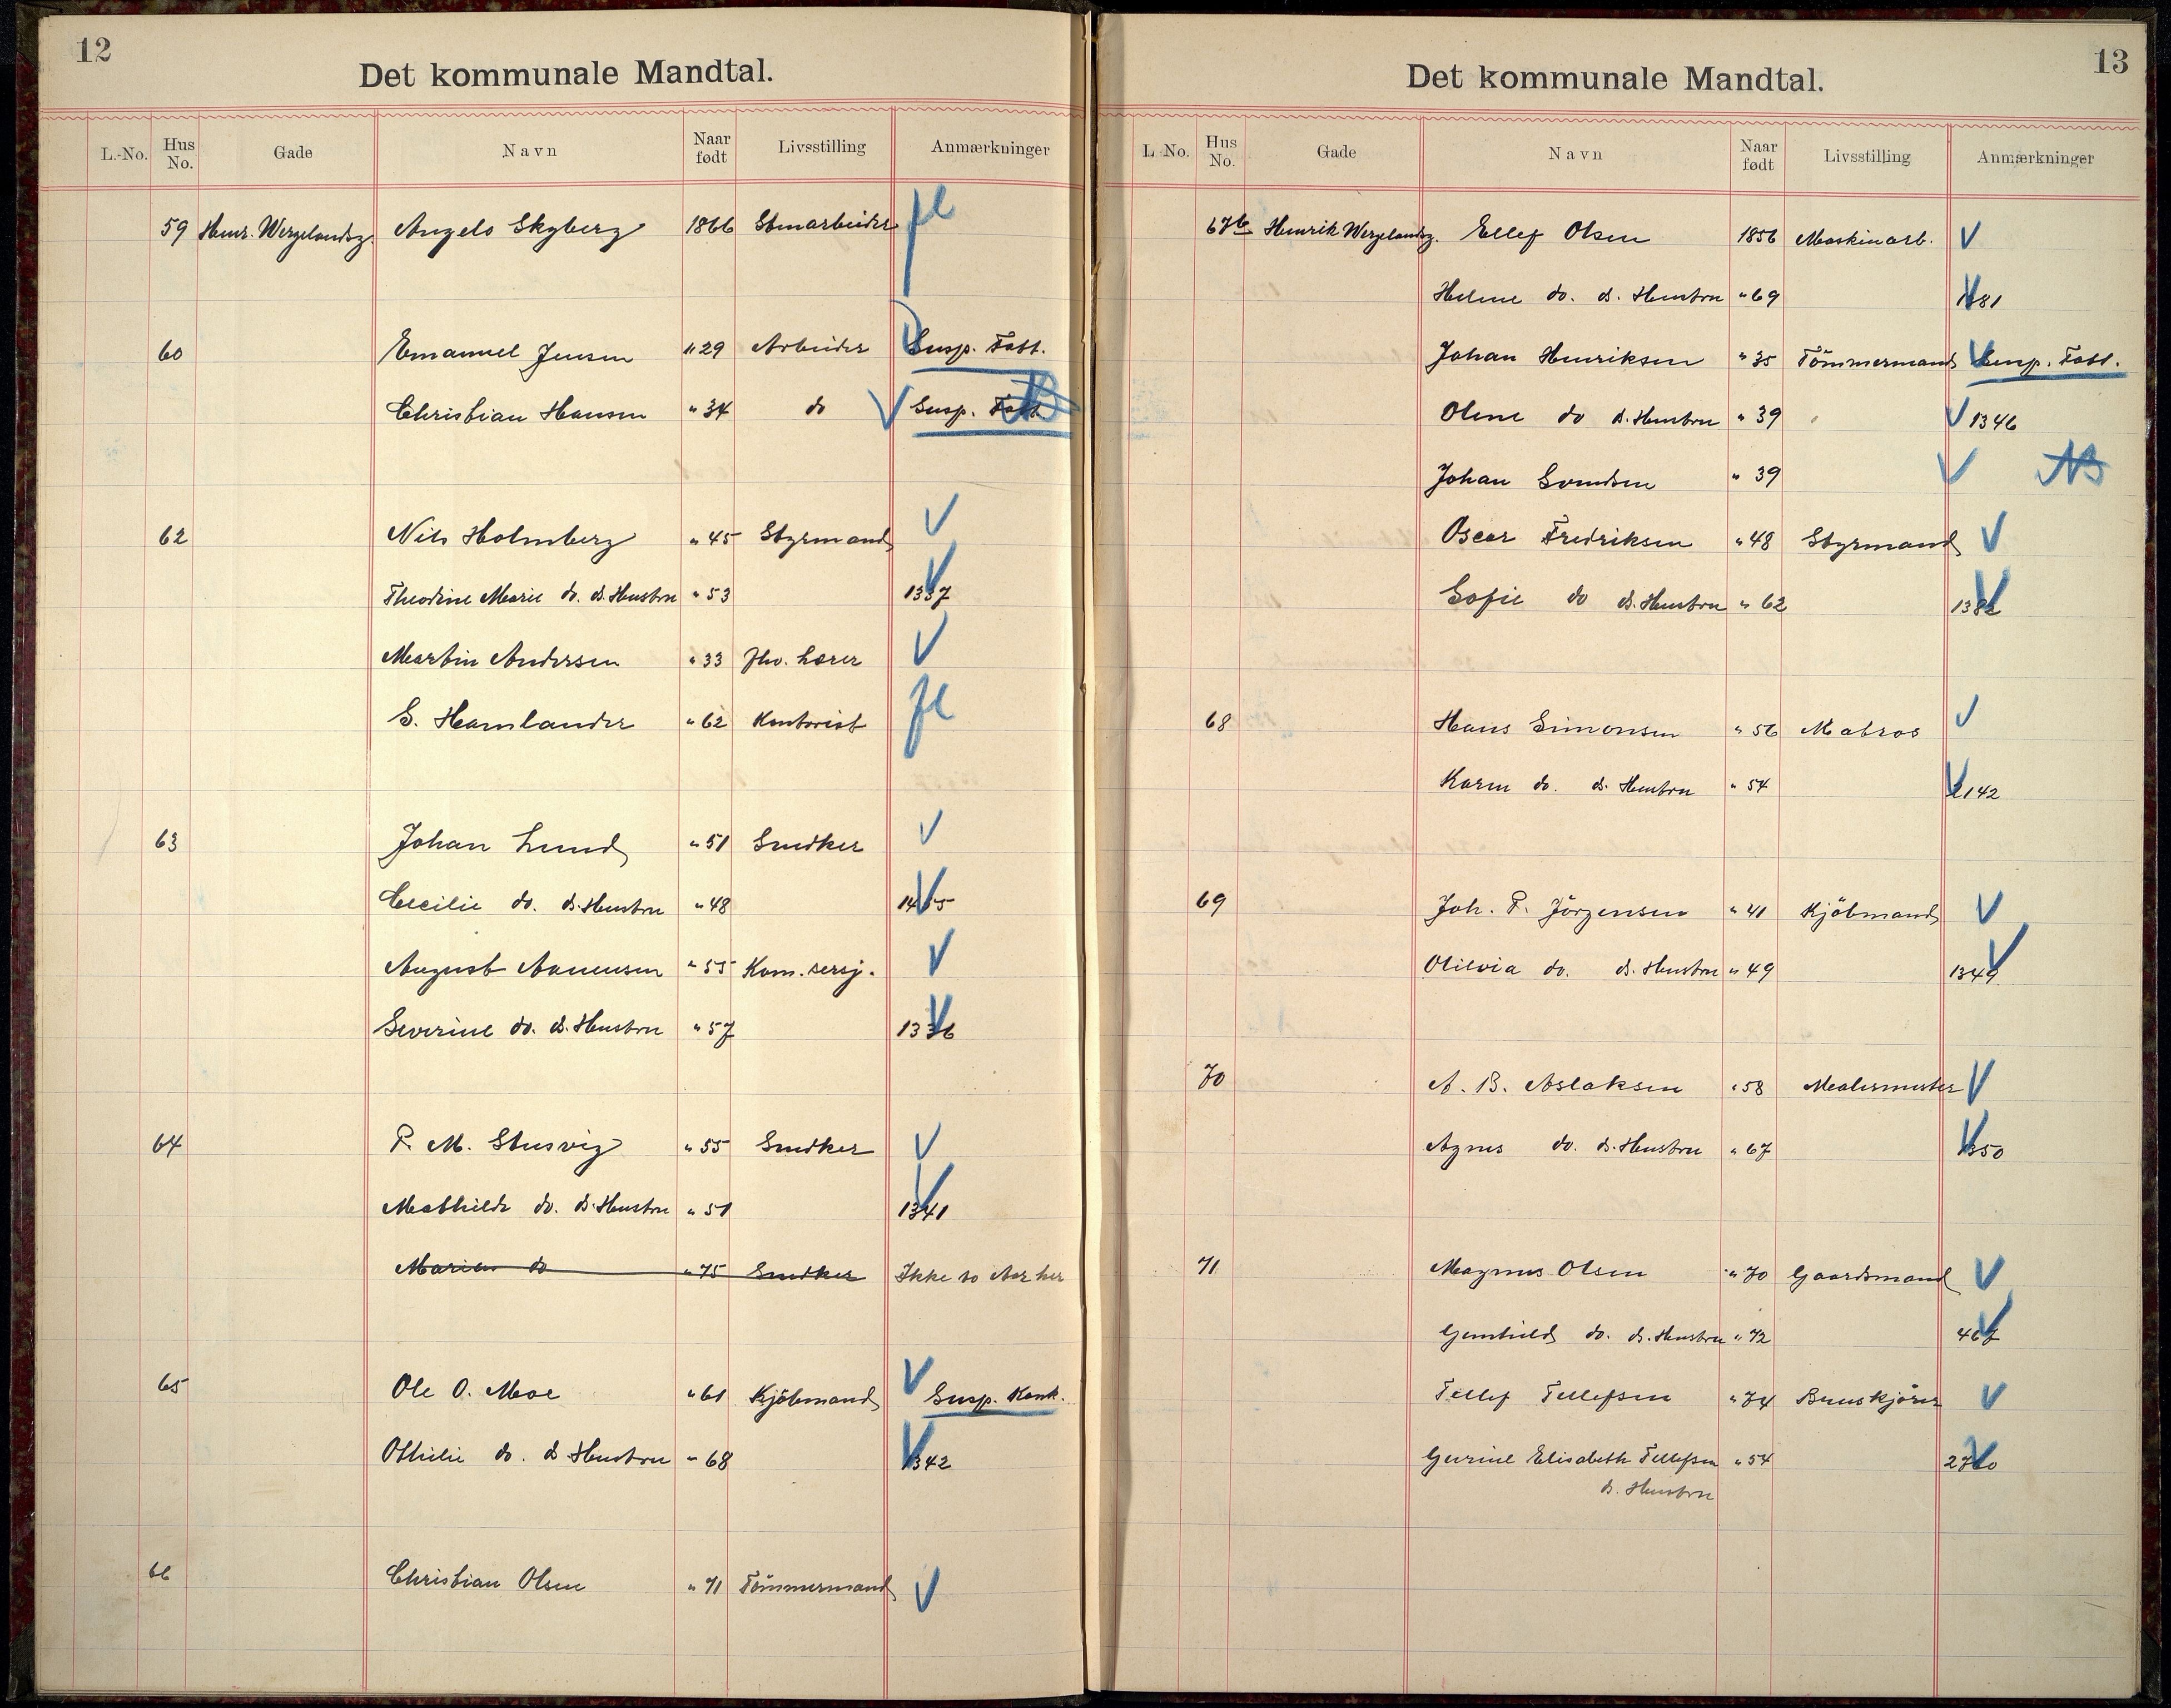 12
Det kommunale Mandtal.
L.-No. Hus No. Gade Navn Naar født Livsstilling Anmærkninger
59 Henr. Wergelandsg. Angelo Skyberg 1866 Stenarbeider fl
60 Emanuel Jensen " 29 Arbeider Susp. Fatt.
Christian Hansen " 34 do V Susp. Fatt.
62 Nils Holmberg " 45 Styrmand V
Theodine Marie do. d. Hustru " 53 1337
Martin Andersen " 33 fhv. Lærer V
S. Hamlander " 62 Kontorist fl
63 Johan Lund " 51 Snedker V
Cecilie do. d. Hustru " 48
August Aanensen " 55 Kom. sersj. V
Severine do. d. Hustru " 57 1336
64 P. M. Stusvig " 55 Snedker V
Mathilde do. d. Hustru " 51 1341
Marius do " 75 Snedker Ikke to Aar her
65 Ole O. Moe " 61 Kjöbmand V Susp. Konk.
Othilie do. d Hustru " 68 1342
66 Christian Olsen " 71 Tömmermand V
13
Det kommunale Mandtal.
L.-No. Hus No. Gade Navn Naar født Livsstilling Anmærkninger
67b Henrik Wergelandsg. Ellef Olsen 1856 Maskinarb. V
Helene do. d. Hustru " 69 1381
Johan Henriksen " 35 Tömmermand V Susp. Fatt.
Olene do d. Hustru " 39 V 1346
Johan Svendsen " 39 V NB
Oscar Fredriksen " 48 Styrmand V
Sofie do d. Hustru " 62 1382
68 Hans Simonsen " 56 Matros V
Karen do. d. Hustru " 54 V 2142
69 Joh. P. Jörgensen " 41 Kjöbmand V
Olilvia do. d. Hustru " 49 1349
70 A. B. Aslaksen " 58 Malermester V
Agnes do. d. Hustru " 67 1350
71 Magnus Olsen " 70 Gaardmand V
Gunhild do. d. Hustru " 72 467
Tellef Tellefsen " 74 Buuskjörer V
Gurine Elisabeth Tellefsen " 54
d. Hustru